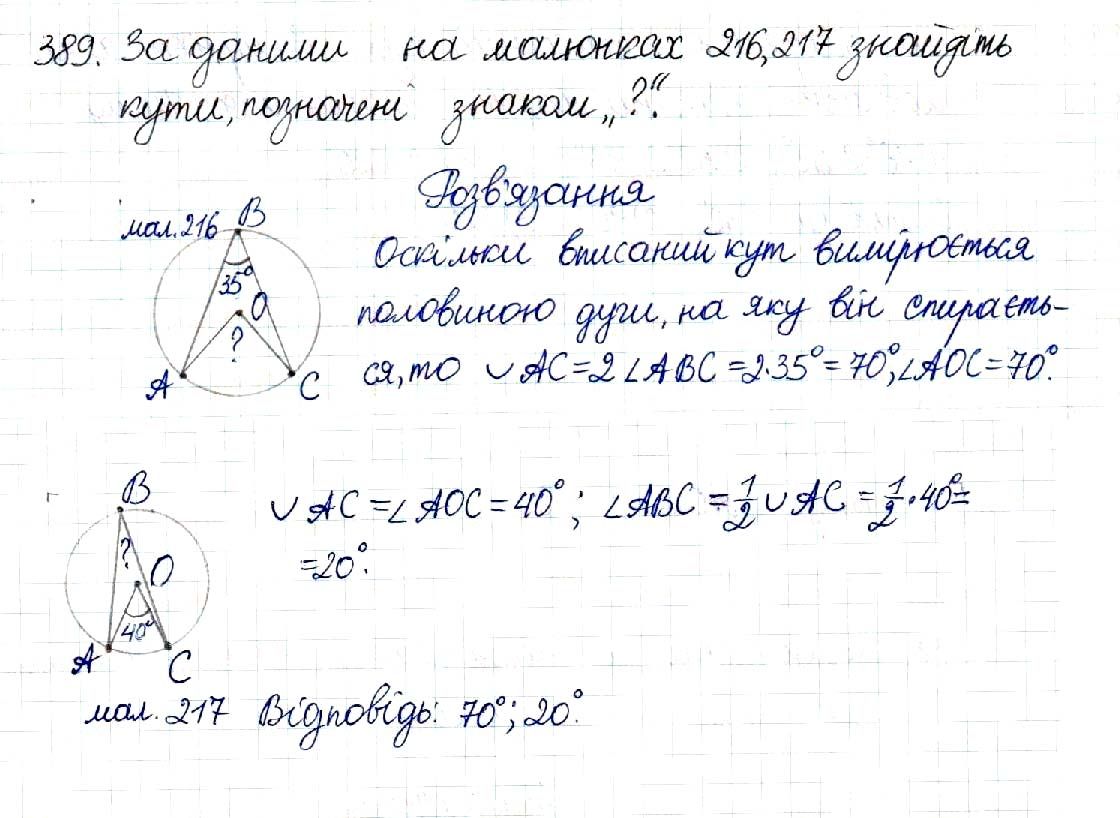 389. За даними на малюнках 216, 217 знайдіть
кути, позначені знаком „?“.
Розв'язання
мал. 216
B
35°
O
?
A
C
Оскільки вписаний кут вимірюється
половиною дуги, на яку він спираєть-
ся, то ∪ AC = 2 ∠ABC = 2·35° = 70°, ∠AOC = 70°.
B
?
O
40°
A
C
∪ AC = ∠AOC = 40°; ∠ABC = 1/2 ∪ AC = 1/2 · 40° =
= 20°.
мал. 217 Відповідь: 70°; 20°.